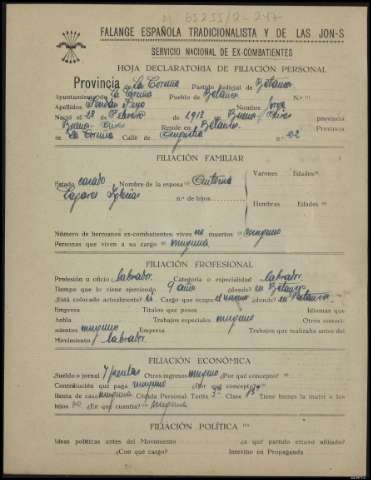 M 65255/2-217
FALANGE ESPAÑOLA TRADICIONALISTA Y DE LAS JON-S
SERVICIO NACIONAL DE EX-COMBATIENTES
HOJA DECLARATORIA DE FILIACIÓN PERSONAL
Provincia de La Coruña Partido Judicial de Betanzos
Ayuntamiento de La Coruña Pueblo de Betanzos N.º
Apellidos Nombre Jorge
Nació el de Febrero de 1912 Provincia
Reside en Betanzos Provincia
de La Coruña Calle de n.º 62
FILIACIÓN FAMILIAR
Estado casado Nombre de la esposa Antonia Varones Edades
Lagares Iglesias n.º de hijos Hembras Edades
Número de hermanos ex-combatientes; vives no muertos ninguno
Personas que viven a su cargo ninguna
FILIACIÓN PROFESIONAL
Profesión u oficio labrador Categoría o especialidad labrador
Tiempo que lo viene ejerciendo 9 años ¿dónde? en Betanzos
¿Está colocado actualmente? Cargo que ocupa ¿dónde? en Betanzos
Empresa Títulos que posee Idiomas que
habla Trabajos especiales ninguno Otros conoci-
mientos ninguno Empresa Trabajos que realizaba antes del
Movimiento labrador
FILIACIÓN ECONÓMICA
¿Sueldo o jornal 7 pesetas Otros ingresos ninguno ¿Por qué concepto?
Contribución que paga ninguno ¿Por qué concepto?
Renta de casa ninguna Cédula Personal Tarifa Clase 13ª Tiene los
hijos no ¿En qué cuantía? ninguna
FILIACIÓN POLÍTICA
Ideas políticas antes del Movimiento ¿a qué partido estuvo afiliado?
¿Con qué cargo? Intervino en Propaganda